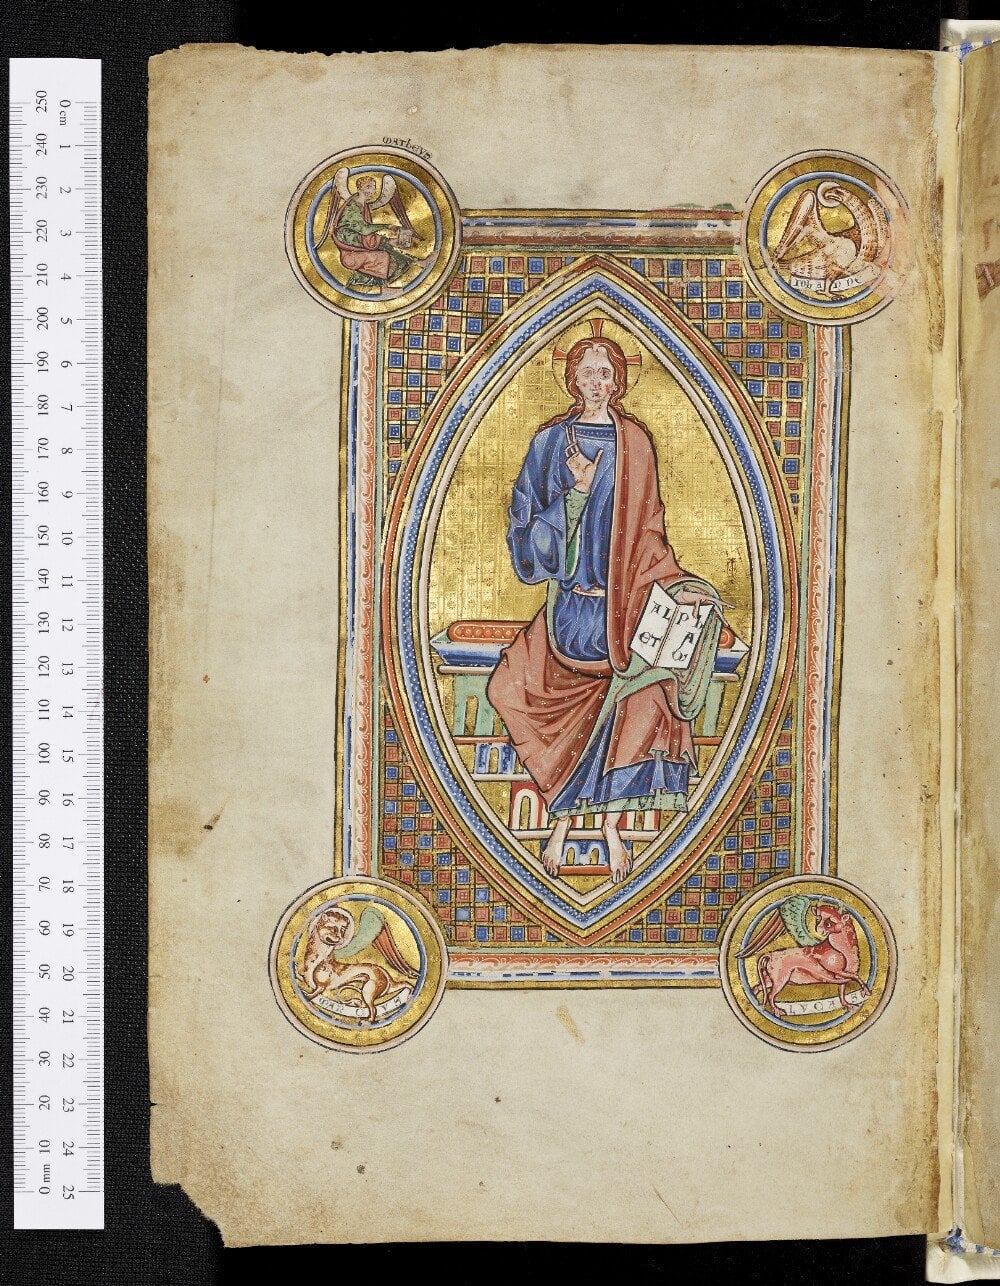 matheus
AL P
ET A
ω
0 cm 1 2 3 4 5 6 7 8 9 10 11 12 13 14 15 16 17 18 19 20 21 22 23 24 25
mm 0 10 20 30 40 50 60 70 80 90 100 110 120 130 140 150 160 170 180 190 200 210 220 230 240 250